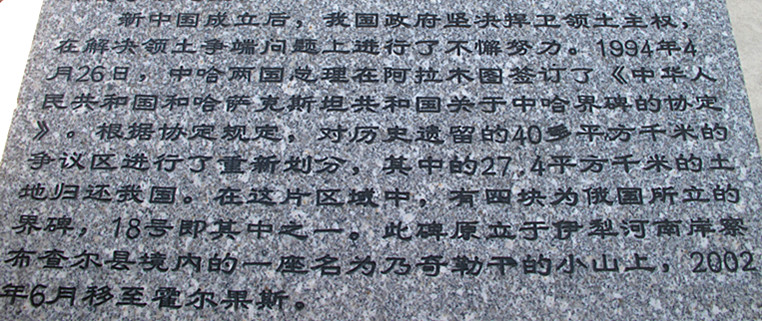 新中国成立后，我国政府坚决捍卫领土主权，
在解决领土争端问题上进行了不懈努力。1994年4
月26日，中哈两国总理在阿拉木图签订了《中华人
民共和国和哈萨克斯坦共和国关于中哈界碑的协定
》。根据协定规定，对历史遗留的40多平方千米的
争议区进行了重新划分，其中的27.4平方千米的土
地归还我国。在这片区域中，有四块为俄国所立的
界碑，18号即其中之一。此碑原立于伊犁河南岸察
布查尔县境内的一座名为乃奇勒干的小山上，2002
年6月移至霍尔果斯。